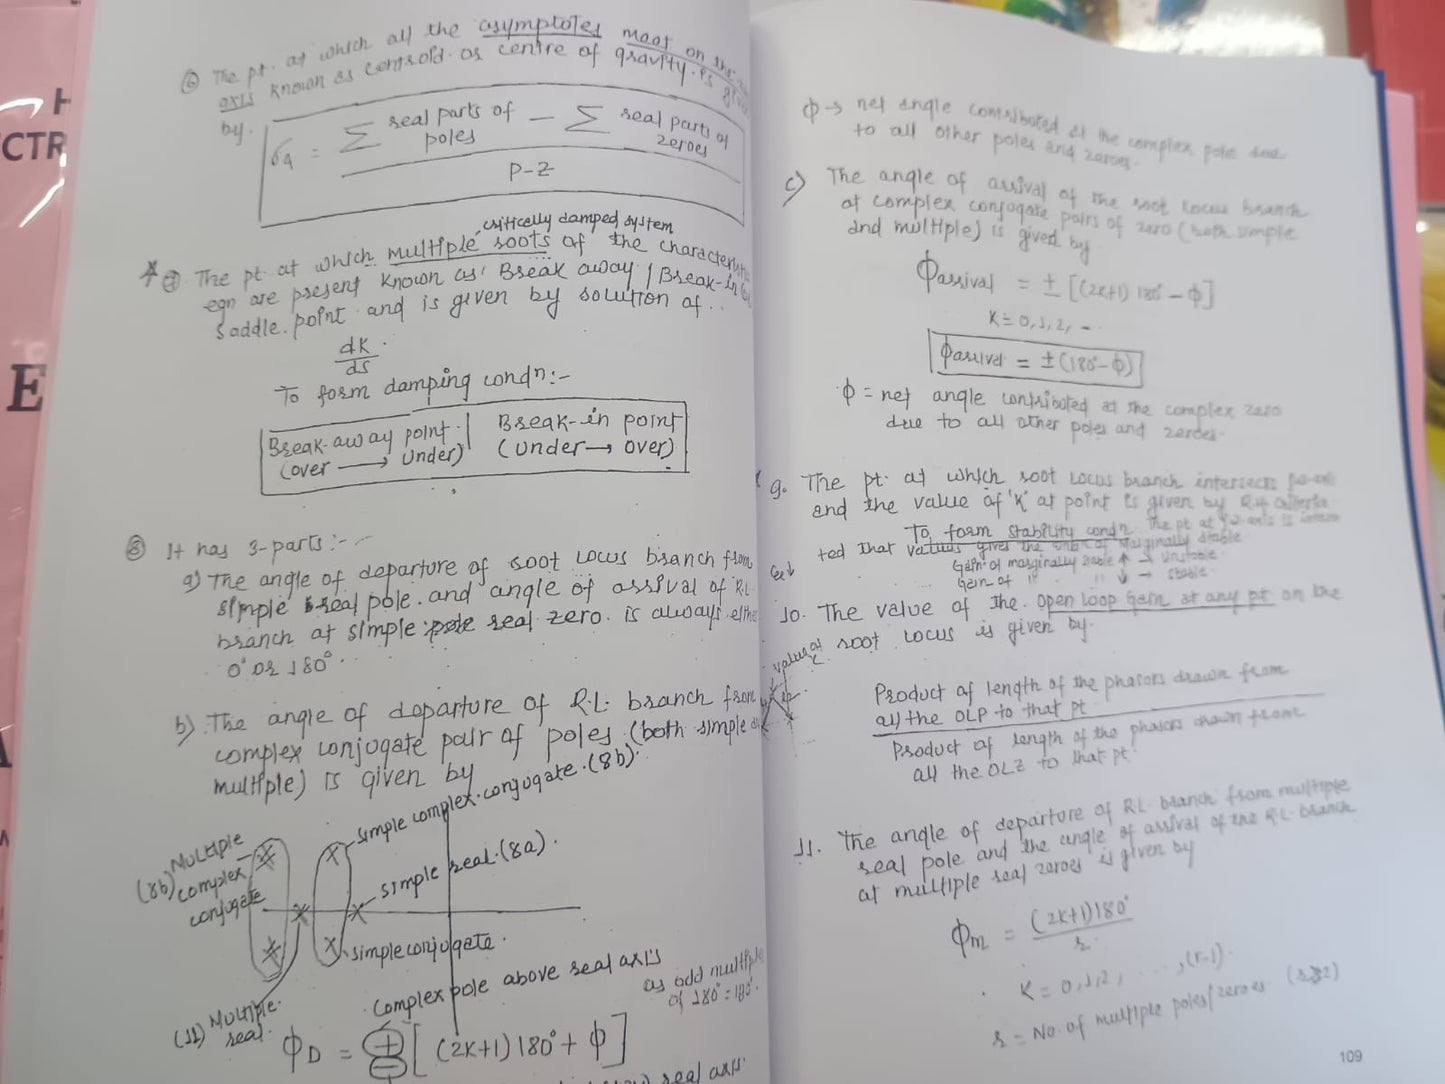 ⑥ The pt. at which all the asymptotes meet on the
axis known as centroid or centre of gravity. is given
by.
σA = Σ real parts of poles − Σ real parts of zeroes
P-Z
critically damped system
* ⑦ The pt at which multiple roots of the characteristic
eqn are present known as Break away / Break-in
saddle point and is given by solution of..
dK
ds
To form damping condn:-
Break-away point. | Break-in point
(over → under) (under → over)
⑧ It has 3-parts:-
a) The angle of departure of root locus branch from
simple real pole. and angle of arrival of R.L.
branch at simple real zero. is always either
0° or 180°.
b) The angle of departure of R.L. branch from
complex conjugate pair of poles (both simple
multiple) is given by
simple complex conjugate.(8b).
(8b) Multiple
complex
conjugate
simple real.(8a).
simple conjugate.
(11) Multiple
real.
Complex pole above real axis
as odd multiple
of 180° = 180°.
ϕD = ± [(2K+1)180° + ϕ]
real axis
ϕ → net angle contributed at the complex pole due
to all other poles and zeroes.
c) The angle of arrival of the root locus branch
at complex conjugate pairs of zero (both simple
and multiple) is given by
ϕarrival = ± [(2K+1) 180° − ϕ]
K = 0,1,2, -..
ϕarrival = ± (180° − ϕ)
ϕ = net angle contributed at the complex zero
due to all other poles and zeroes.
9. The pt. at which root locus branch intersects jω-axis
and the value of 'K' at point is given by R.H criteria.
To form stability condn. The pt at jω-axis is
ted that values gives the of Marginally stable
Gain of marginally stable ↑ → unstable.
Gain of " " ↓ → stable.
10. The value of the open loop Gain at any pt on the
root locus is given by.
value of
K
Product of length of the phasors drawn from
all the OLP to that pt
Product of length of the phasors drawn from
all the OLZ to that pt
11. The angle of departure of R.L. branch from multiple
real pole and the angle of arrival of the R.L. branch
at multiple real zeroes is given by
ϕm = (2K+1)180°
r
K = 0,1,2, ...., (r-1).
r = No. of multiple poles/zeroes (r≥2)
109
H
CTR
E